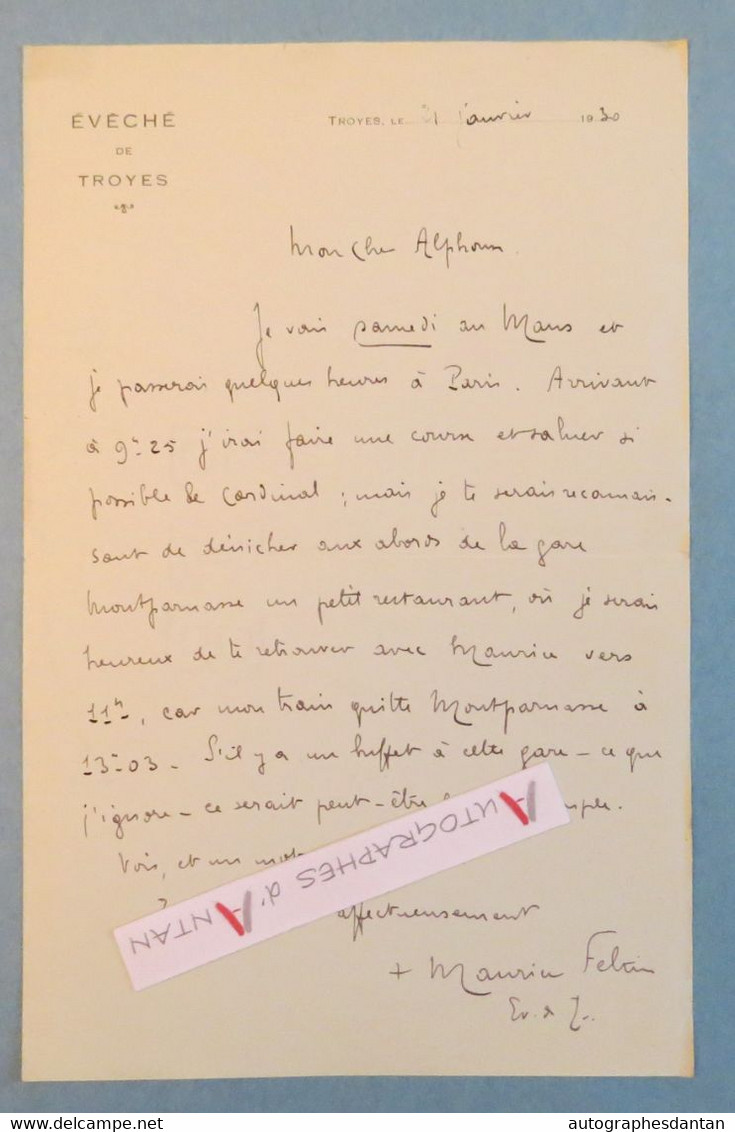 ÉVÊCHÉ
DE
TROYES
TROYES, LE 31 janvier 1930
Mon cher Alphonse
Je vais samedi au Mans et
je passerai quelques heures à Paris. Arrivant
à 9h25 j'irai faire une course et saluer si
possible le Cardinal ; mais je te serais reconnais-
sant de dénicher aux abords de la gare
Montparnasse un petit restaurant, où je serais
heureux de te retrouver avec Maurice vers
11h, car mon train quitte Montparnasse à
13h03 - S'il y a un buffet à cette gare - ce que
j'ignore - ce serait peut-être
Vois, et un mot
affectueusement
+ Maurice Feltin
Ev. de T.
AUTOGRAPHES d'ANTAN
delcampe.net
autographesdantan